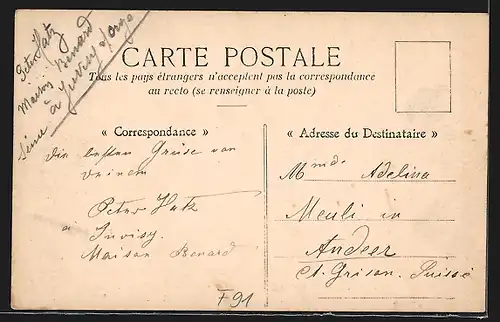 Peter Hatz
Maison Benard
à Juvisy s/orge
Seine
CARTE POSTALE
Tous les pays étrangers n'acceptent pas la correspondance
au recto (se renseigner à la poste)
« Correspondance »
« Adresse du Destinataire »
Die besten Grüse von
Deinem
Peter Hatz
à Juvisy.
Maison Benard
Mmde Adelina
Meuli in
Andeer
Ct. Grison. Suisse
F91